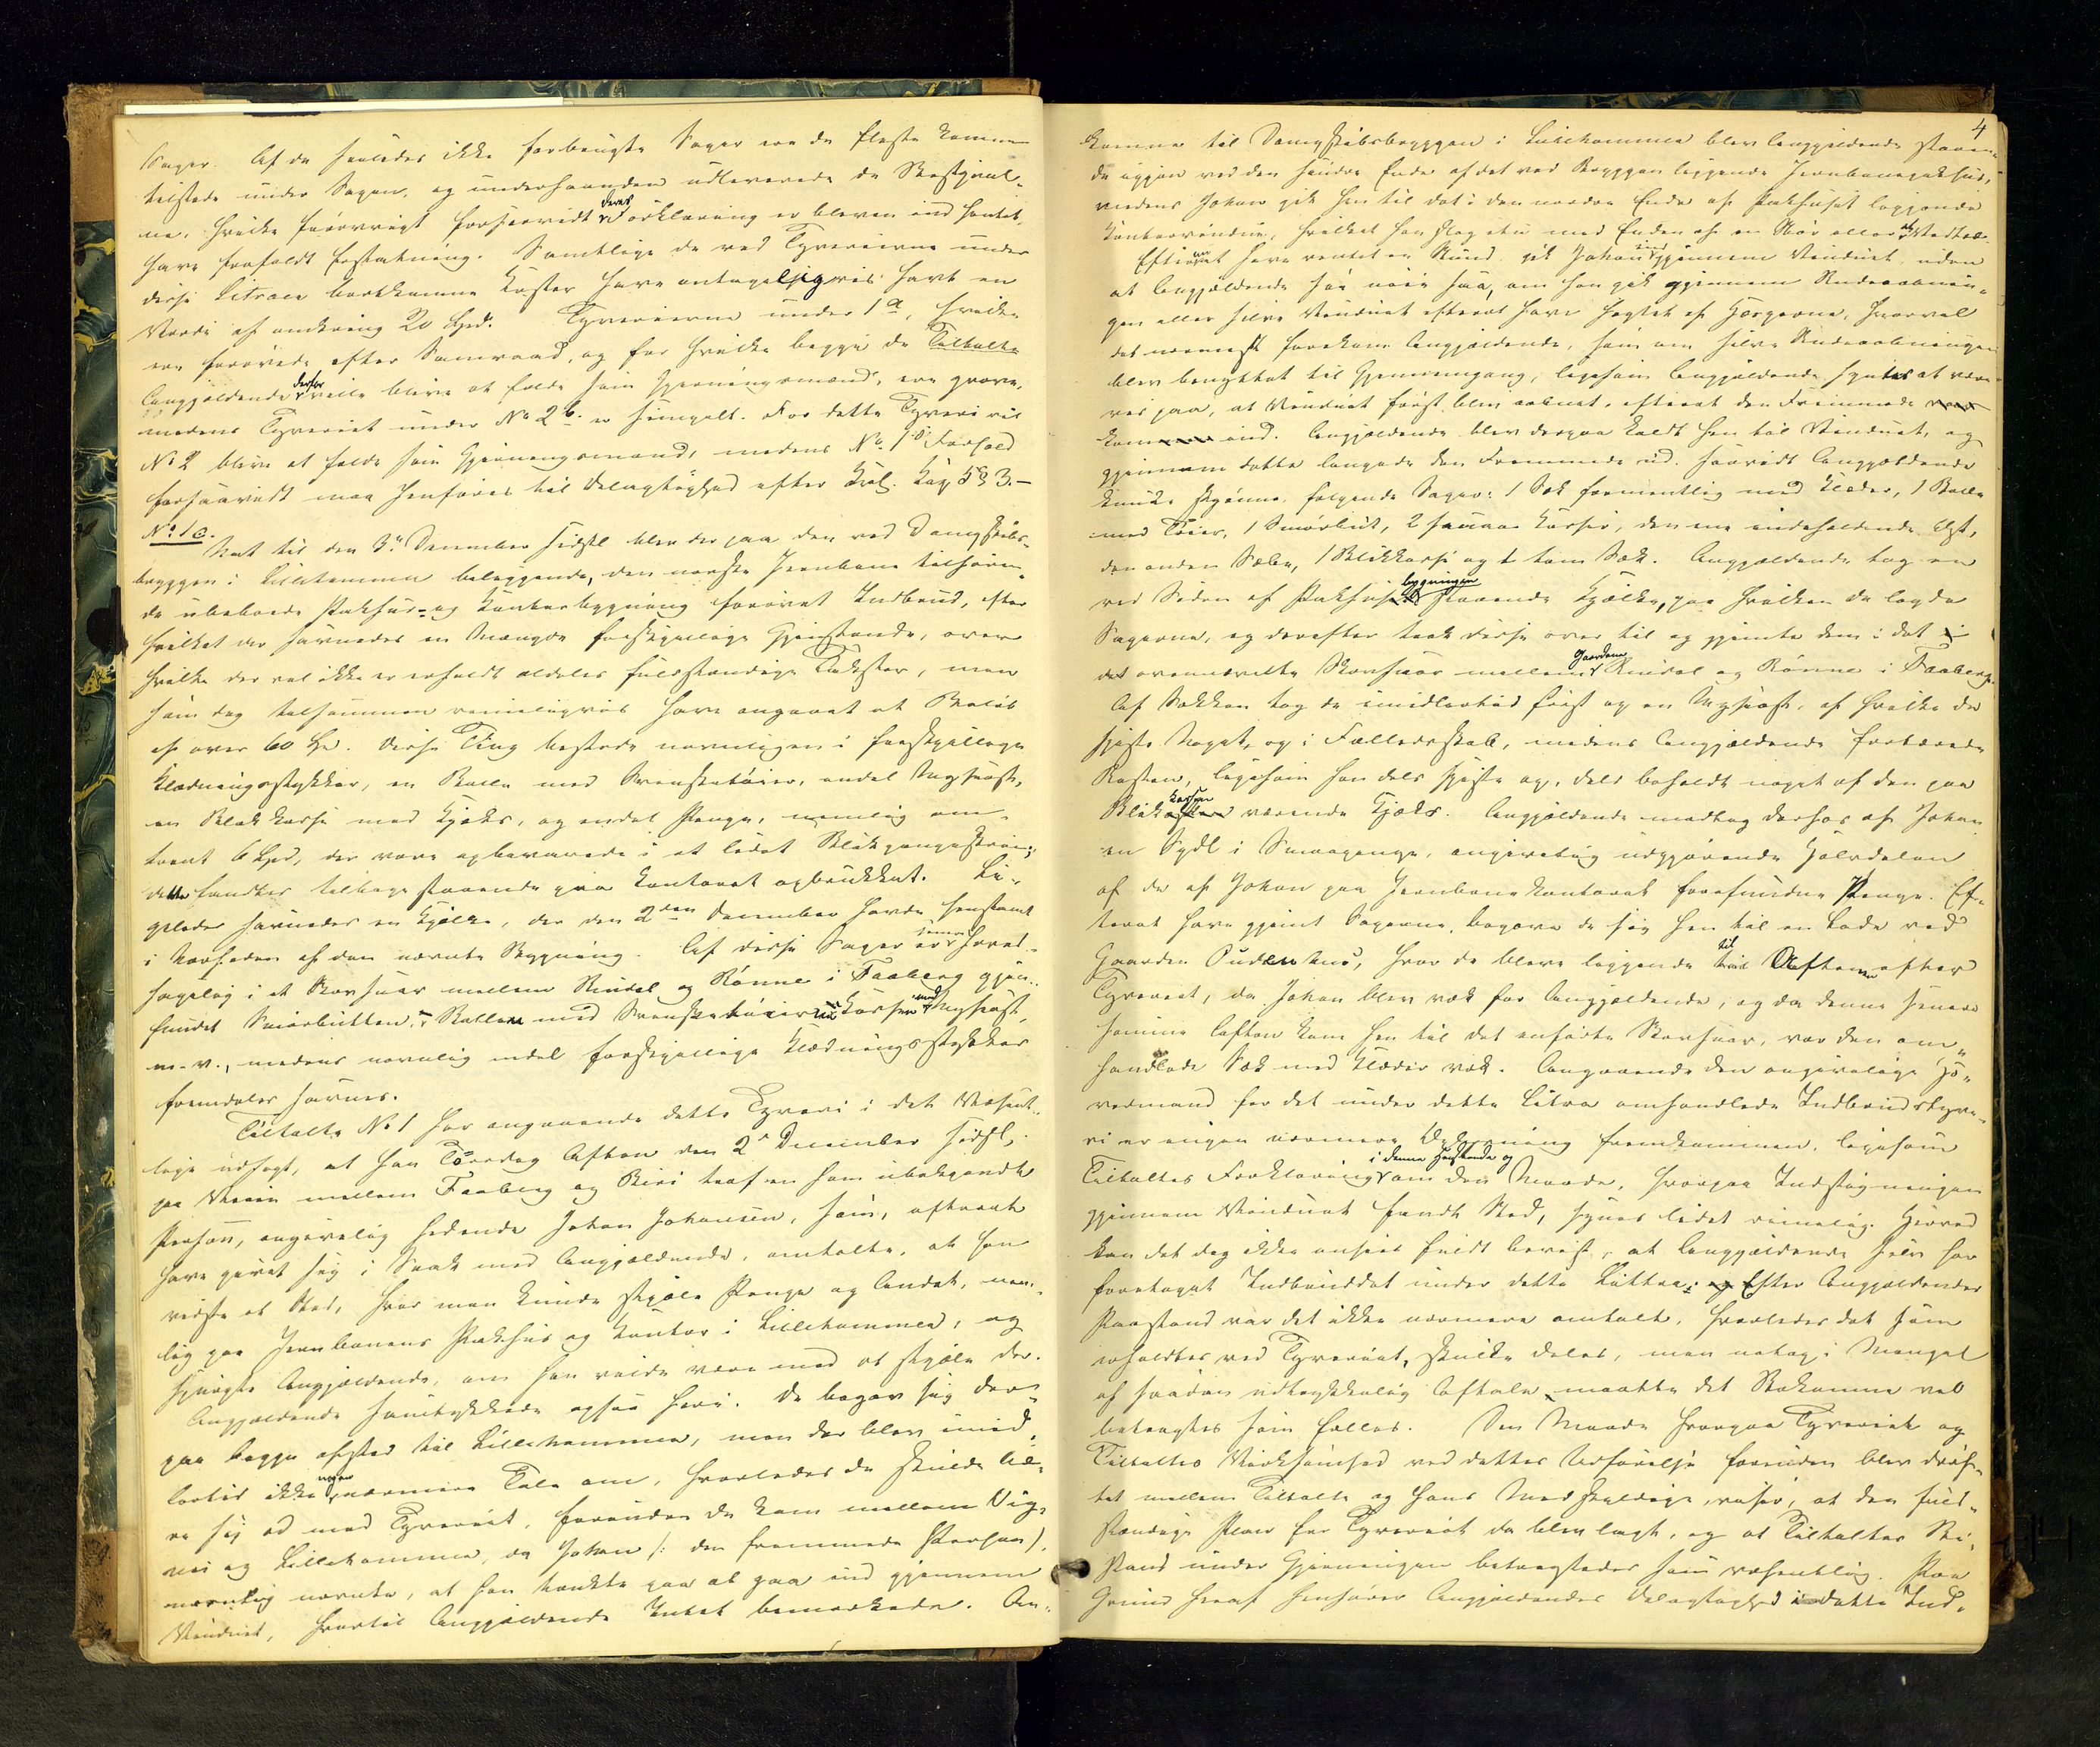 Sager. Af de saaledes ikke forbrugte Sager ere de fleste komne
tilstede under Sagen, og underhaanden udleverede de Bestjaal-
ne, hvilke forøvrigt forsaavidt deres Forklaring er bleven ind hentet,
have frafaldt Erstatning. Samtlige de ved Tyverierne under
disse Litraer bortkomne Koster have antageligvis havt en
Værdi af omkring 20 Spd. Tyverierne under 1 a, hvilke
ere forøvede efter Samraad, og for hvilke begge de Tiltalte
Angjældende derfor ville blive at fælde som Gjerningsmænd, ere grove,
medens Tyveriet under No 2 b. er simpelt. For dette Tyveri vil
No 2 blive at fælde som Gjerningsmand, medens No. 1's Forhold
forsaavidt maa henføres til Delagtighed efter Krl. Kap 5 § 3. –
No 1 c.
Nat til den 3de December sidstl. blev der paa den ved Dampskibs-
bryggen i Lillehammer beliggende, den norske Jernbane tilhøren-
de ubeboede Pakhus- og Kontorbygning forøvet Indbrud, efter
hvilket der savnedes en Mængde forskjellige Gjenstande, over
hvilke der vel ikke er erholdt aldeles fuldstændige Takster, men
som dog tilsammen rimeligvis have angaaet et Beløb
af over 60 Spd. Disse Ting bestode navnligen i forskjellige
Klædningsstykker, en Balle med Svensketøier, endel Mysost,
en Blikkasse med Kjæks, og endel Penge, nemlig om-
trent 6 Spd, der vare opbevarede i et lidet Blikpengeskrin;
dette fandtes tilbage staaende paa Kontoret opbrukket. Li-
geledes savnedes en Kjælke, der den 2den December havde henstaaet
i Nærheden af den nævnte Bygning. Af disse Sager er senere hoved-
sagelig i et Skovsnar mellem Rindal og Rønne i Faaberg gjen-
fundet Smørbutten, Ballen med Svensketøier en Kasse med Mysost,
m. v., medens navnlig endel forskjellige Klædningsstykker
fremdeles savnes.
Tiltalte No 1 har angaaende dette Tyveri i det Væsent-
lige udsagt, at han Torsdag Aften den 2den December sidstl,
paa Veien mellem Faaberg og Biri traf en ham ubekjendt
Person, angivelig hedende Johan Johansen, som, efterat
have givet sig i Snak med Angjældende, omtalte, at han
vidste et Sted, hvor man kunde stjæle Penge og Andet, nem-
lig paa Jernbanens Pakhus og Kontor i Lillehammer, og
spurgte Angjældende, om han vilde være med at stjæle der.
Angjældende samtykkede ogsaa heri. De begav sig der-
paa begge afsted til Lillehammer, men der blev imid-
lertid ikke nogen nærmere Tale om, hvorledes de skulde bæ-
re sig ad med Tyveriet, førinden de kom mellem Vig-
nes og Lillehammer, da Johan /: den fremmede Person :/
nemlig nævnte, at han tænkte paa at gaa ind gjennem
Vinduet, hvortil Angjældende Intet bemærkede. An-
4
komne til Dampskibsbryggen i Lillehammer blev Angjældende staaen-
de igjen ved den søndre Ende af det ved Bryggen liggende Jernbanepakhus,
medens Johan gik hen til det i den nordre Ende af Pakhuset liggende
Kontorvindue, hvilket han slog ind med Enden af en Stør eller et Vedtræ.
Efterat have ventet en Stund gik Johan ind gjennem Vinduet uden
at Angjældende saa nøie saa, om han gik gjennem Rudeaabnin-
gen eller selve Vinduet efterat have hægtet af Hasperne, hvorvel
det nærmest forekom Angjældende, som om selve Rudeaabningen
blev benyttet til Gjennemgang, ligesom Angjældende syntes at være
vis paa, at Vinduet først blev aabnet, efterat den Fremmede
kom ind. Angjældende blev derpaa kaldt hen til Vinduet, og
gjennem dette langede den Fremmede ud, saavidt Angjældende
kunde skjønne, følgende Sager: 1 Sæk formentlig med Klæder, 1 Balle
med Tøier, 1 Smørbut, 2 smaa Kasser, den ene indeholdende Ost,
den anden Sæbe, 1 Blikkasse og 1 tom Sæk. Angjældende tog en
ved Siden af Pakhusbygningen staaende Kjælke, paa hvilken de lagde
Sagerne, og derefter trak disse over til og gjemte dem i det
det ovennævnte Skovsnar mellem Gaardene Rindal og Rønne i Faaberg.
Af Sækken tog de imidlertid først op en Mysost, af hvilke de
spiste Noget, og i Fællesskab, medens Angjældende fortærede
Resten, ligesom han dels spiste op, dels beholdt noget af den paa
Blikkassen værende Kjæks. Angjældende modtog derhos af Johan
en Spdl i Smaapenge, angivelig udgjørende Halvdelen
af de af Johan paa Jernbanekontoret forefundne Penge. Ef-
terat have gjemt Sagerne, begave de sig hen til en Lade ved
Gaarden, hvor de bleve liggende til Aftenen efter
Tyveriet, da Johan blev væk for Angjældende, og da denne senere
samme Aften kom hen til det anførte Skovsnar, var den om-
handlede Sæk med Klæder væk. Angaaende den angivelige Ho-
vedmand for det under dette Litra omhandlede Indbrudstyve-
ri er ingen nærmere Oplysning fremkommen, ligesom
Tiltaltes Forklaring i denne Henseende og om den Maade, hvorpaa Indstigningen
gjennem Vinduet fandt Sted, synes lidet rimelig. Herved
kan det dog ikke ansees fuldt bevist, at Angjældende selv har
foretaget Indbruddet under dette Littra; Efter Angjældendes
Paastand var det ikke nærmere omtalt, hvorledes det som
erholdtes ved Tyveriet, skulde deles, men netop i Mangel
af saadan udtrykkelig Aftale maatte det Bekomne vel
betragtes som fælles. Den Maade hvorpaa Tyveriet og
Tiltaltes Virksomhed ved dettes Udførelse forinden blev drøf-
tet mellem Tiltalte og hans Medskyldige, viser, at den fuld-
stændige Plan for Tyveriet da blev lagt, og at Tiltaltes Bi-
stand under Gjerningen betragtedes som væsentlig. Paa
Grund heraf henføres Angjældendes Delagtighed i dette Ind-